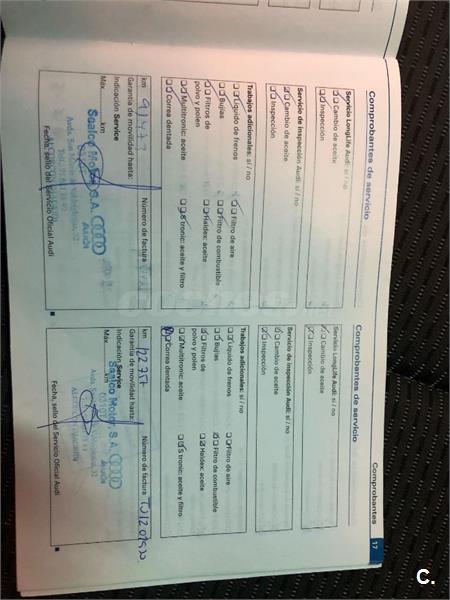 Comprobantes
17
Comprobantes de servicio
Servicio LongLife Audi: sí / no
Cambio de aceite
Inspección
Servicio de inspección Audi: sí / no
Cambio de aceite
Inspección
Trabajos adicionales: sí / no
Líquido de frenos
Filtro de aire
Bujías
Filtro de combustible
Filtros de polvo y polen
Haldex: aceite
Multitronic: aceite
S tronic: aceite y filtro
Correa dentada
km
Número de factura
Garantía de movilidad hasta:
Indicación Service
Máx. km
Sealco Motor S.A.
Audi
Fecha, sello del Servicio Oficial Audi
Comprobantes de servicio
Servicio LongLife Audi: sí / no
Cambio de aceite
Inspección
Servicio de inspección Audi: sí / no
Cambio de aceite
Inspección
Trabajos adicionales: sí / no
Líquido de frenos
Filtro de aire
Bujías
Filtro de combustible
Filtros de polvo y polen
Haldex: aceite
Multitronic: aceite
S tronic: aceite y filtro
Correa dentada
km
Número de factura
Garantía de movilidad hasta:
Indicación Service
Máx. km
Sealco Motor S.A.
Audi
Fecha, sello del Servicio Oficial Audi
C.